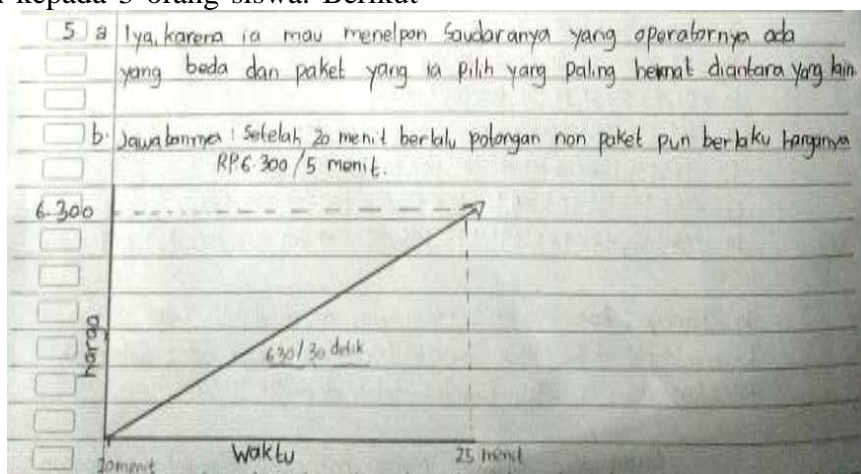 kepada 3 orang siswa. Berikut
5 a Iya, karena ia mau menelpon Saudaranya yang operatornya ada
yang beda dan paket yang ia pilih yang paling hemat diantara yang lain.
b. Jawabannya : Setelah 20 menit berlalu potongan non paket pun berlaku harganya
RP6.300/5 menit.
6.300
harga
630/30 detik
20 menit
Waktu
25 menit